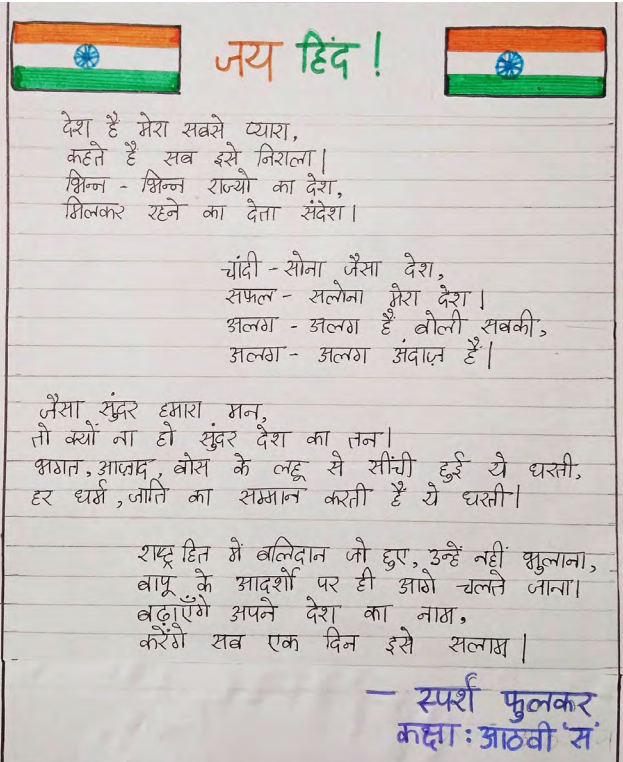 जय हिंद !
देश है मेरा सबसे प्यारा,
कहते है सब इसे निराला |
भिन्न - भिन्न राज्यो का देश,
मिलकर रहने का देता संदेश |
चांदी - सोना जैसा देश,
सफल - सलोना मेरा देश |
अलग - अलग हैं बोली सबकी,
अलग - अलग अंदाज़ हैं |
जैसा सुंदर हमारा मन,
तो क्यों ना हो सुंदर देश का तन |
भगत, आज़ाद, बोस के लहू से सींची हुई ये धरती,
हर धर्म, जाति का सम्मान करती हैं ये धरती |
राष्ट्र हित में बलिदान जो हुए, उन्हें नहीं भुलाना,
बापू के आदर्शो पर ही आगे चलते जाना |
बढ़ाएँगे अपने देश का नाम,
करेंगे सब एक दिन इसे सलाम |
- स्पर्श फुलकर
कक्षा : आठवी 'स'